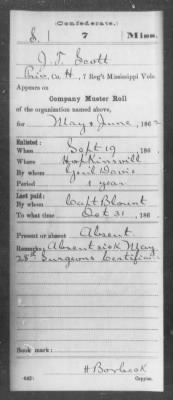 (Confederate.)
S. 7 Miss.
J. T. Scott
Priv., Co. H, 7 Reg't Mississippi Vols.
Appears on
Company Muster Roll
of the organization named above,
for May & June, 1862
Enlisted:
When Sept 19, 186
Where Hopkinsvill
By whom Genl Davis
Period 1 year
Last paid:
By whom Capt Blount
To what time Oct 31, 186
Present or absent Absent
Remarks: Absent sick May
28th Surgeons Certifi
Book mark:
(642)
Copyist.